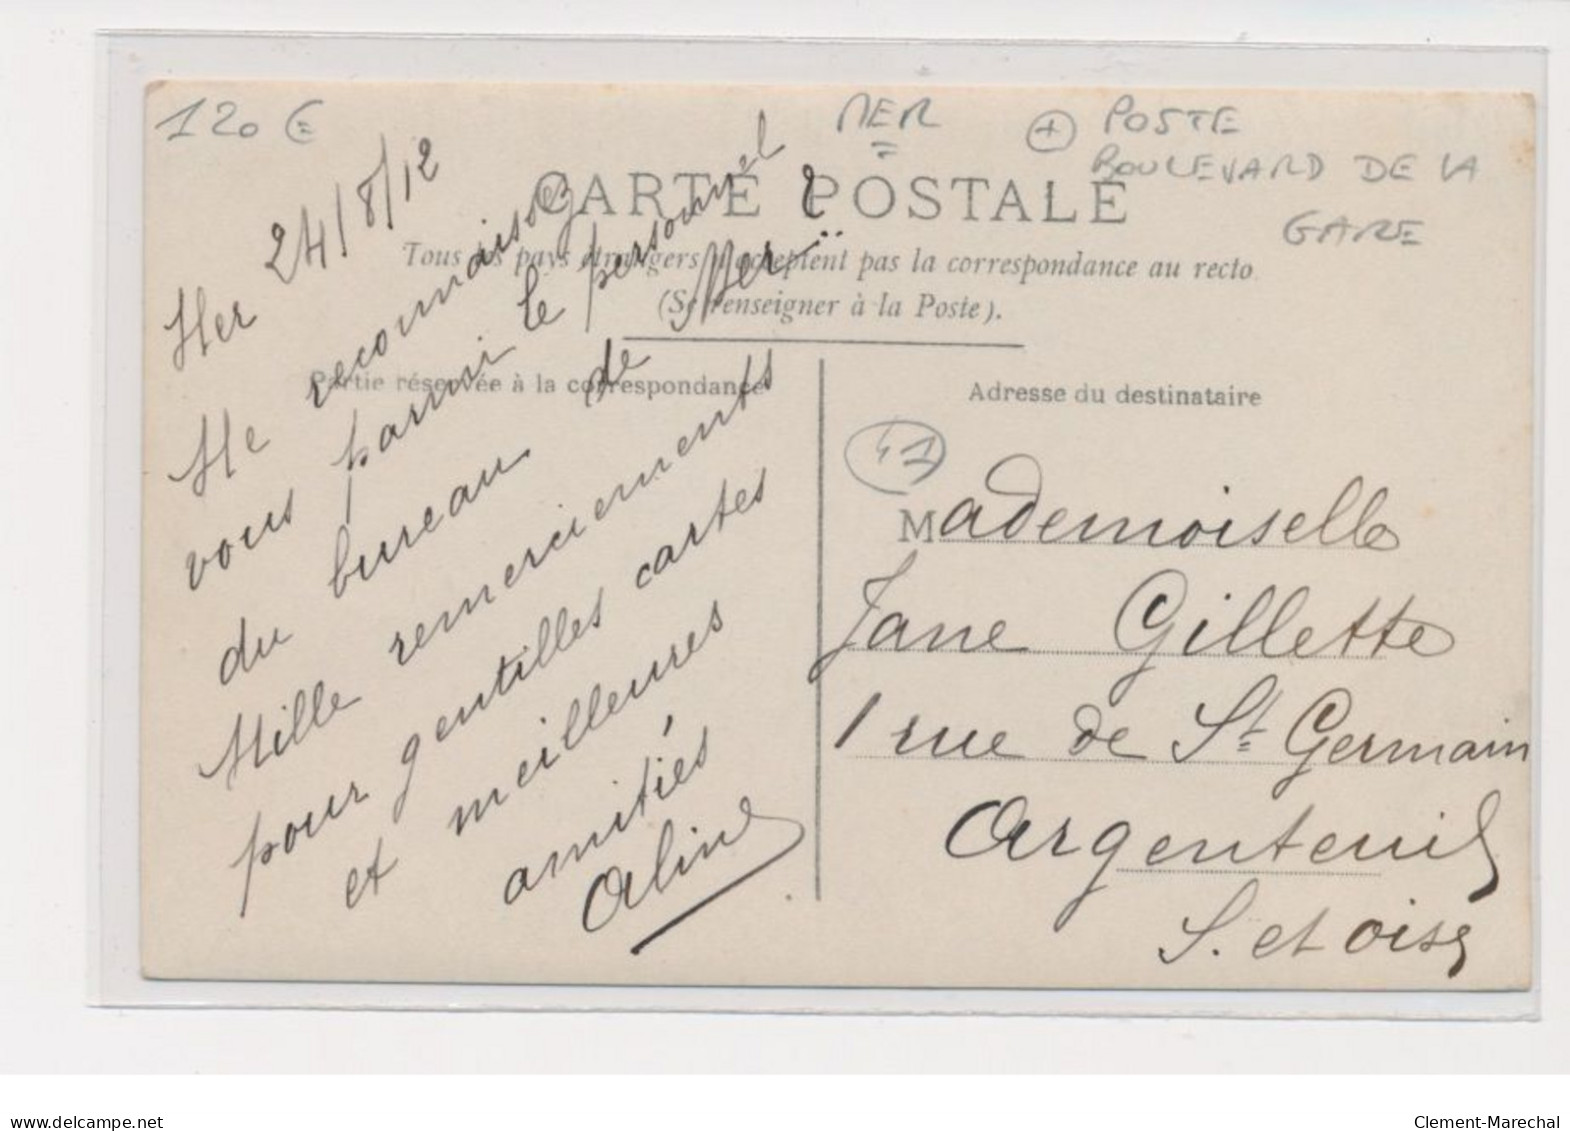 120 €
MER
+ POSTE
BOULEVARD DE LA
GARE
CARTE POSTALE
Tous les pays étrangers n'acceptent pas la correspondance au recto
(Se renseigner à la Poste).
Partie réservée à la correspondance
Adresse du destinataire
Mer 24/8/12
Me reconnaissez
vous parmi le personnel
du bureau de Mer ?
Mille remerciements
pour gentilles cartes
et meilleures
amitiés
Aline
41
Mademoiselle
Jane Gillette
1 rue de St Germain
Argenteuil
S. et oise
www.delcampe.net
Clement-Marechal